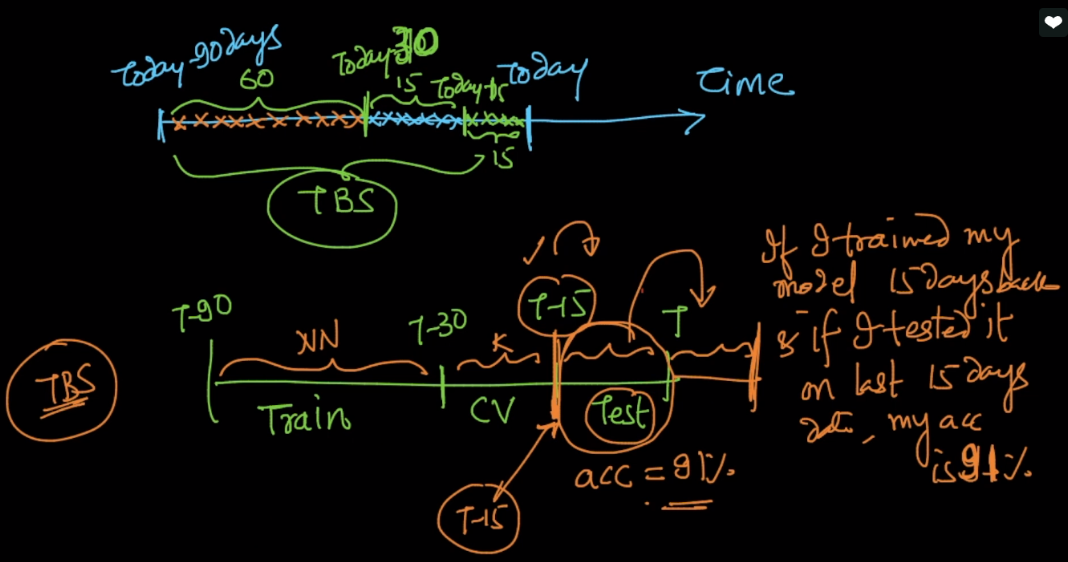 Today-90days
60
Today-30
15
Today-15
Today
Time
15
TBS
T-90
NN
T-30
K
T-15
T
TBS
Train
CV
Test
acc = 91%
T-15
If I trained my
model 15 days back
& if I tested it
on last 15 days
data, my acc
is 91%